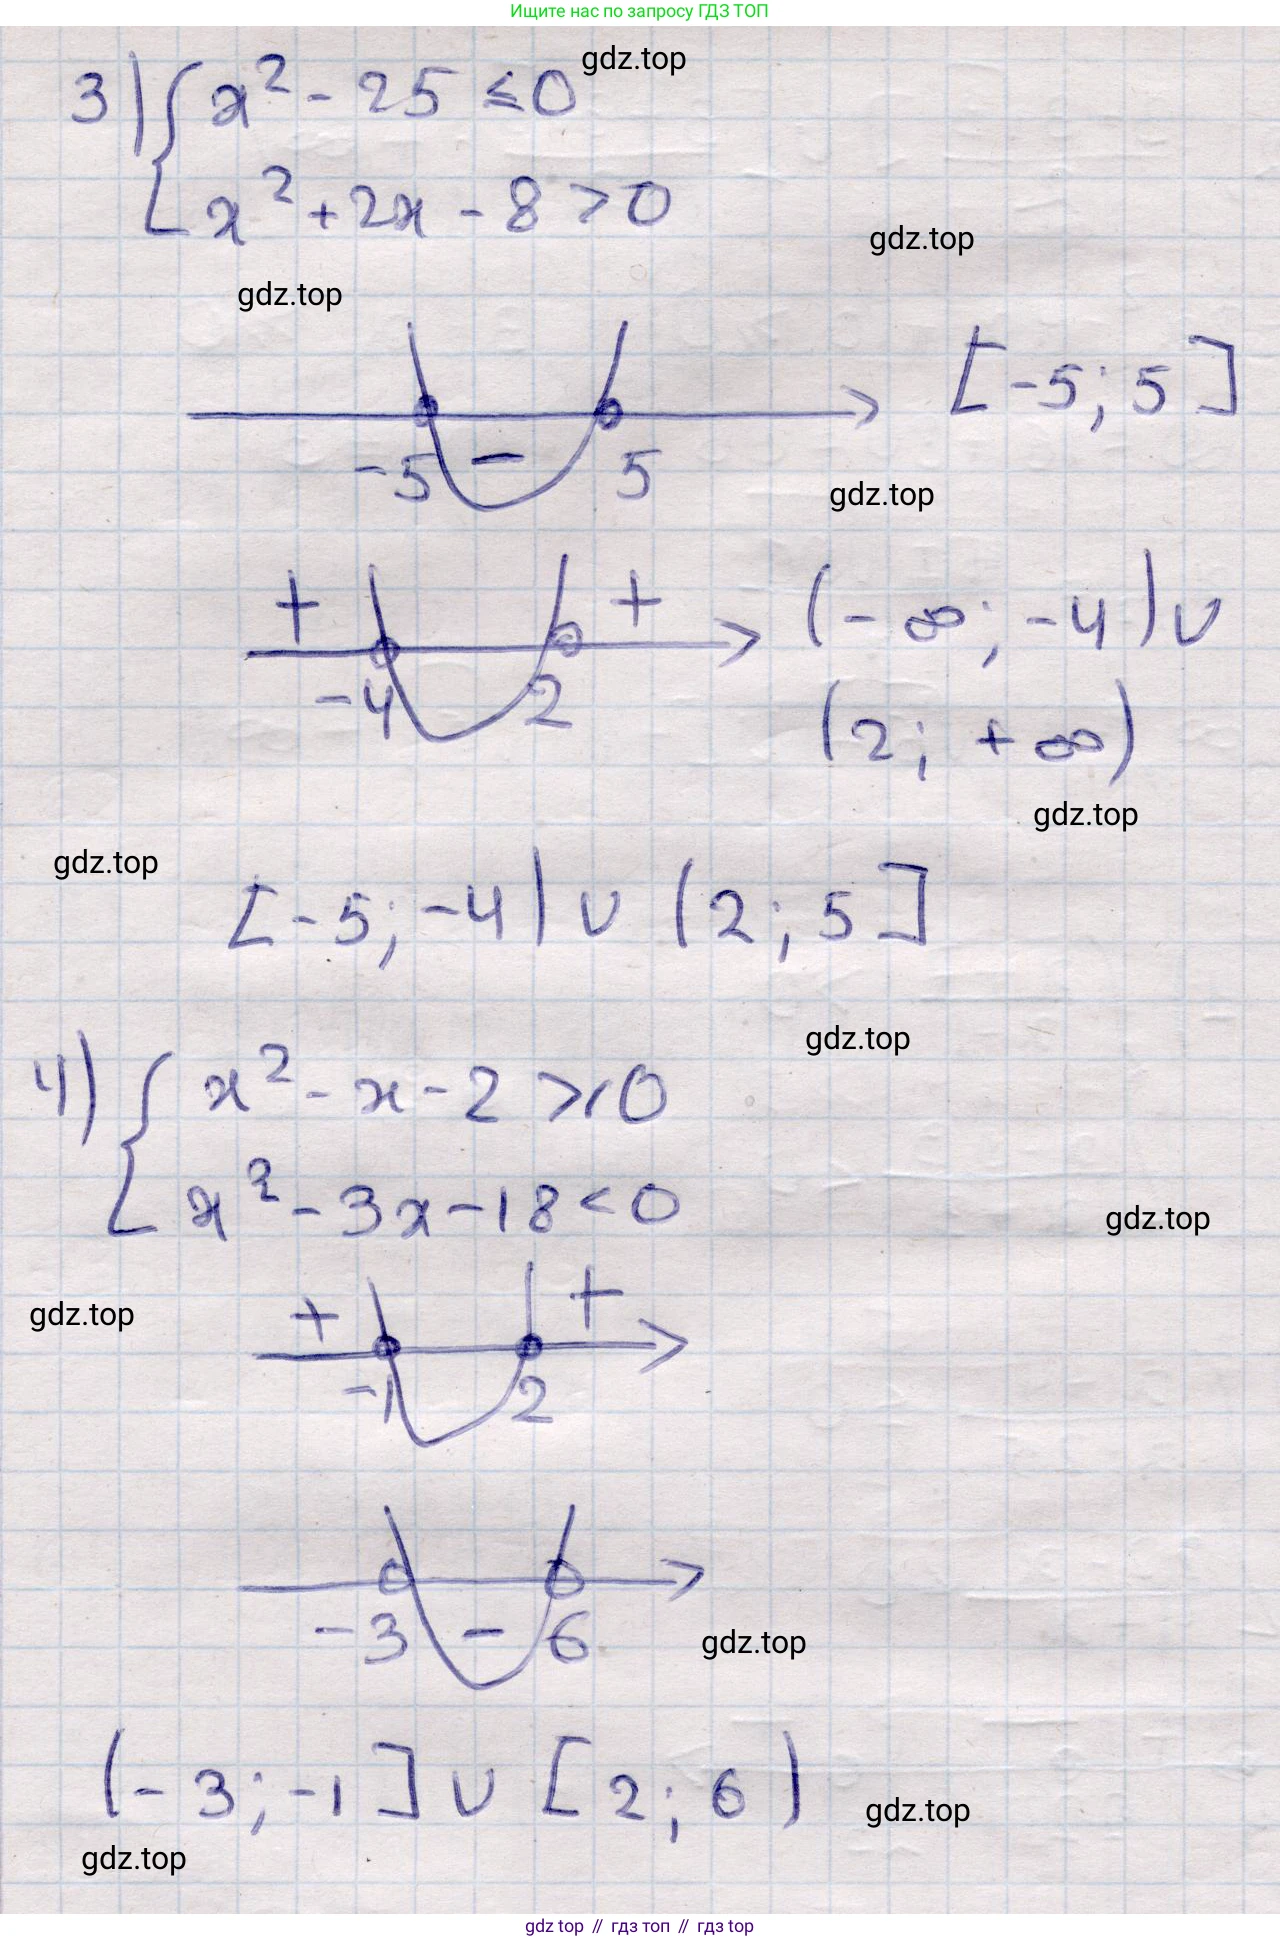 Ищите нас по запросу ГДЗ ТОП
gdz.top
3) { x² - 25 ≤ 0
x² + 2x - 8 > 0
gdz.top
gdz.top
[-5; 5]
-5 - 5
gdz.top
+ + (-∞; -4) ∪
-4 2
(2; +∞)
gdz.top
gdz.top
[-5; -4) ∪ (2; 5]
gdz.top
4) { x² - x - 2 ≥ 0
x² - 3x - 18 < 0
gdz.top
gdz.top
+ +
-1 2
-3 - 6
gdz.top
(-3; -1] ∪ [2; 6)
gdz.top
gdz.top
gdz top // гдз топ // гдз top